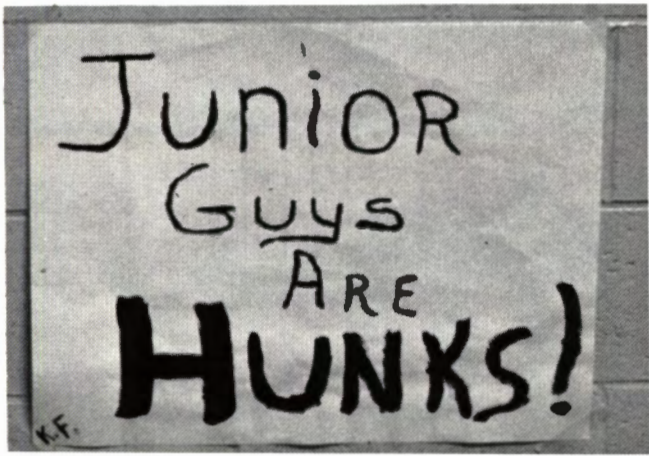 Junior
Guys
Are
HUNKS!
K.F.